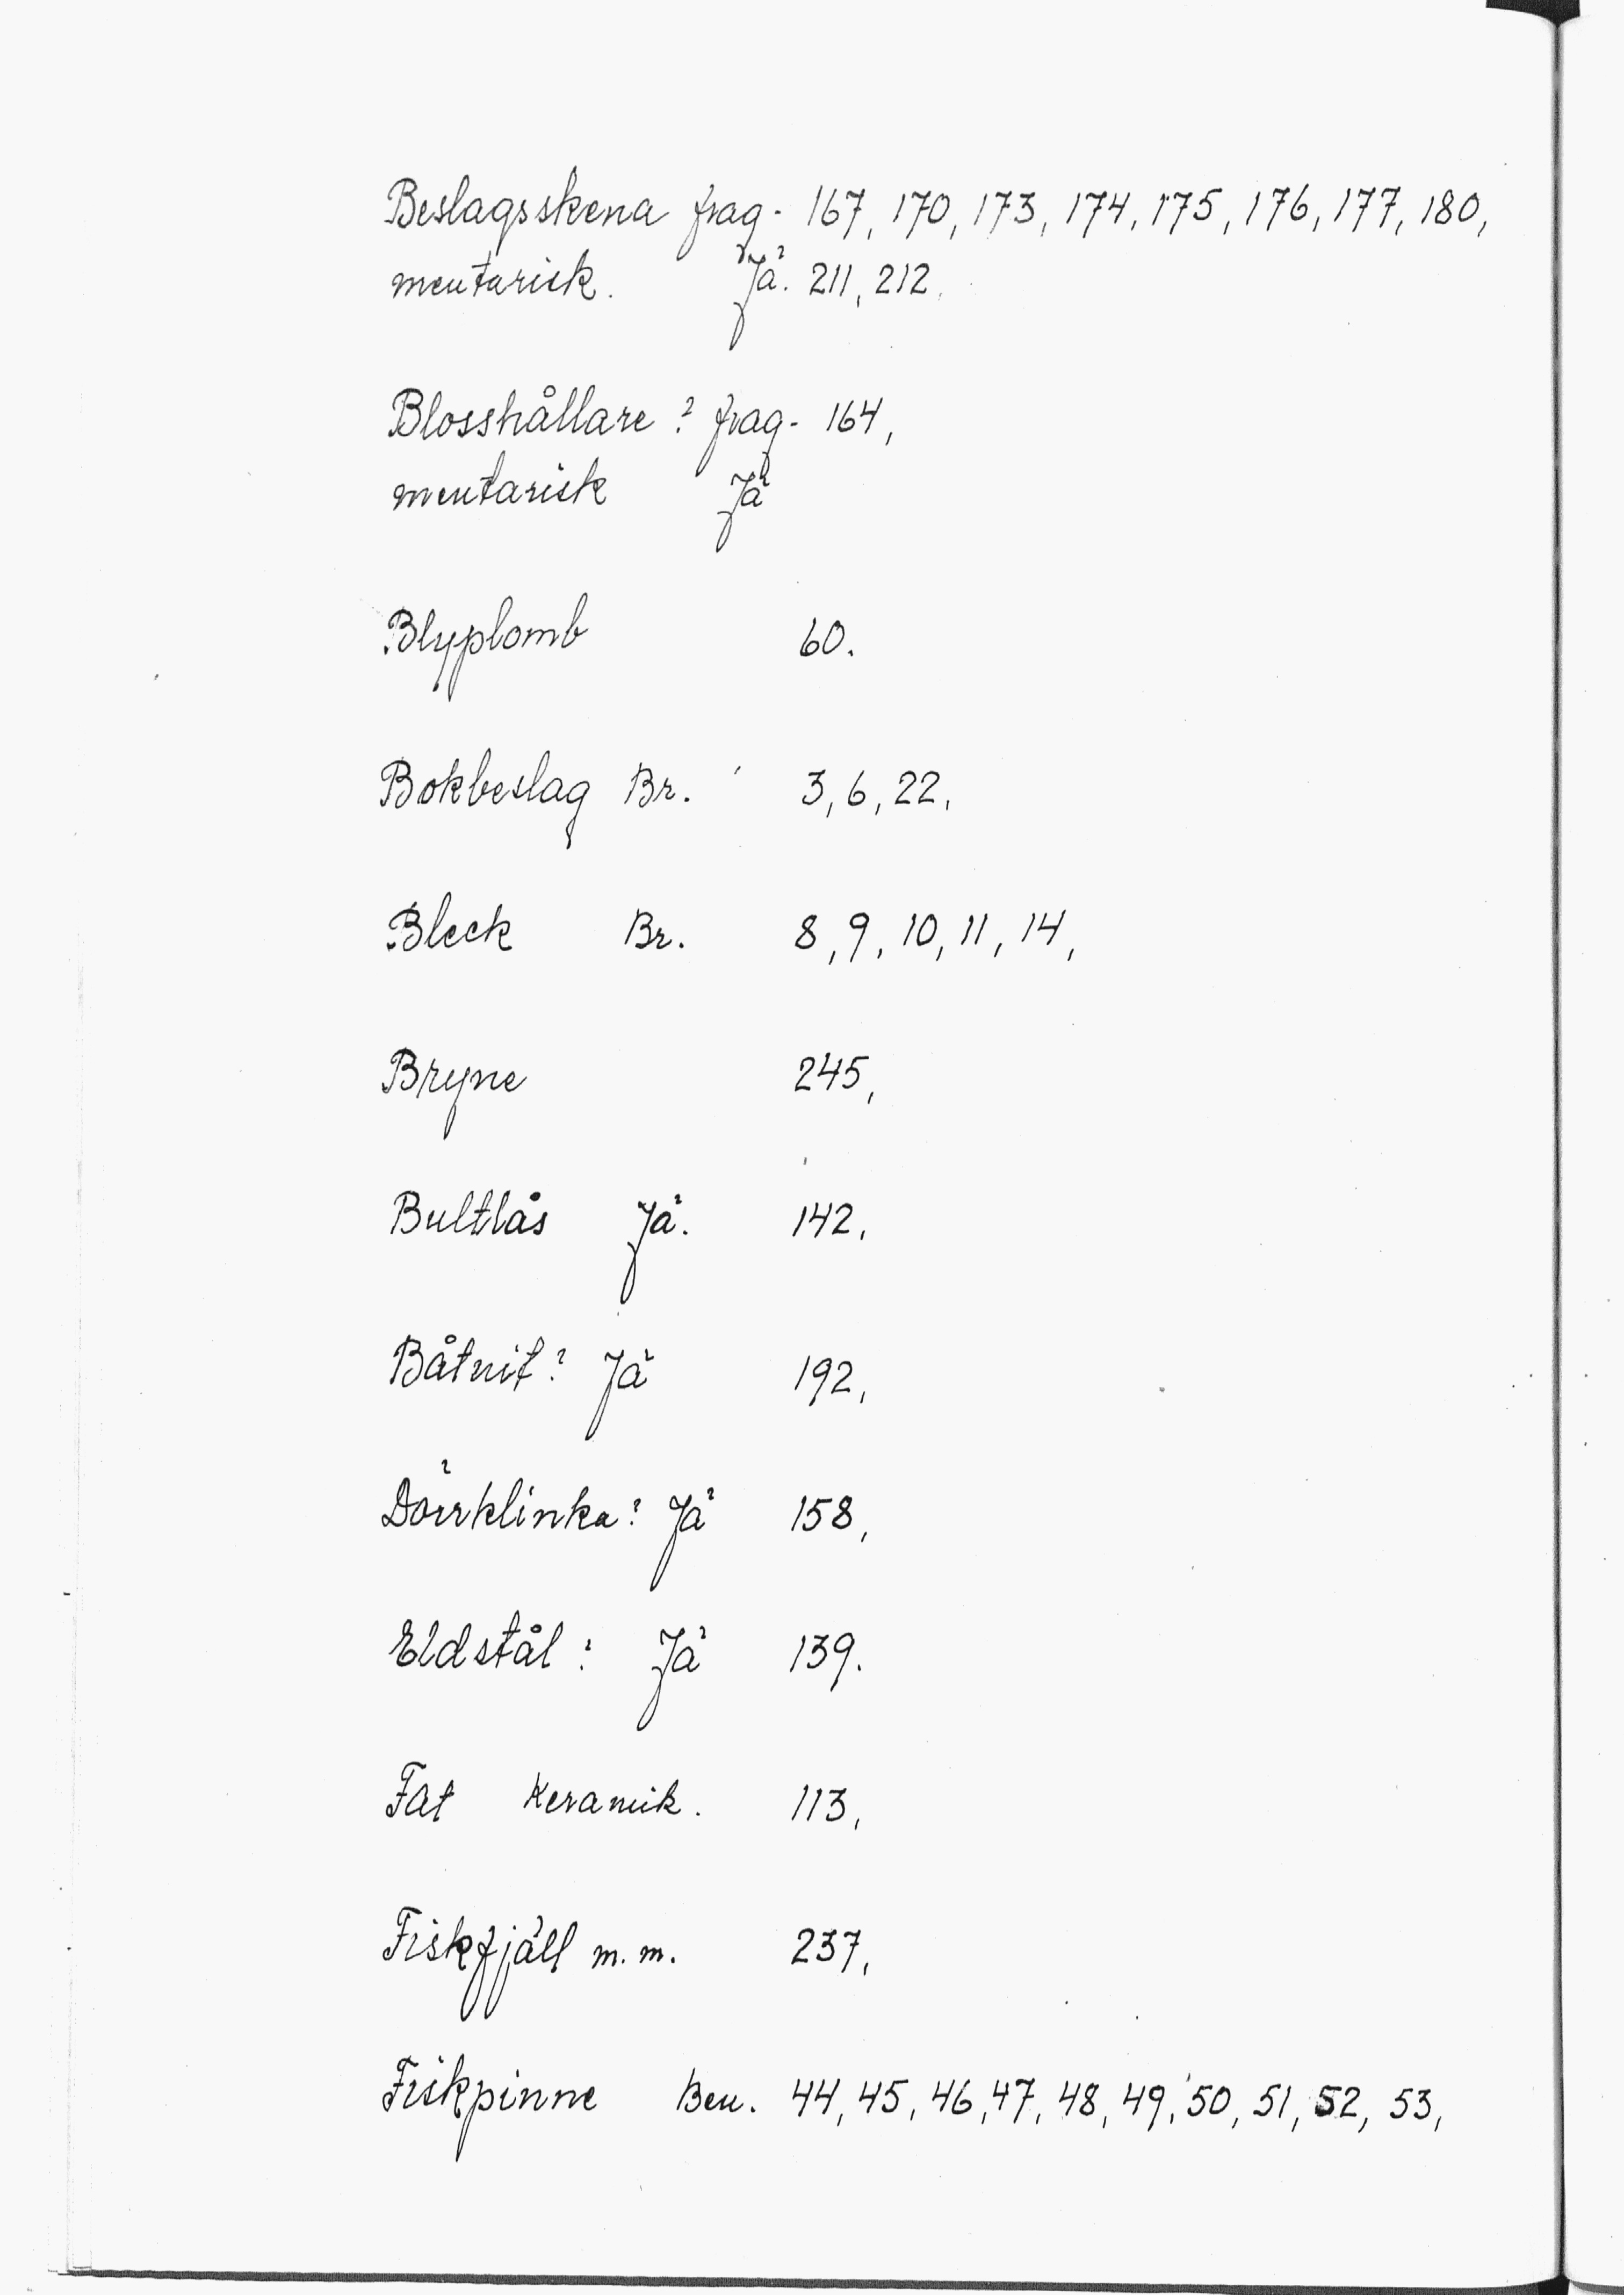 Beslagsskena frag- 167, 170, 173, 174, 175, 176, 177, 180,
mentarisk. Jä. 211, 212.
Blosshållare? frag- 164,
mentarisk Jä
Blyplomb 60.
Bokbeslag Br. 3, 6, 22,
Bleck Br. 8, 9, 10, 11, 14,
Bryne 245,
Bultlås Jä. 142,
Båtnit? Jä 192,
Dörrklinka? Jä 158,
Eldstål? Jä 139.
Fat Keramik. 113,
Fiskfjäll m.m. 237,
Fiskpinne Ben. 44, 45, 46, 47, 48, 49, 50, 51, 52, 53,